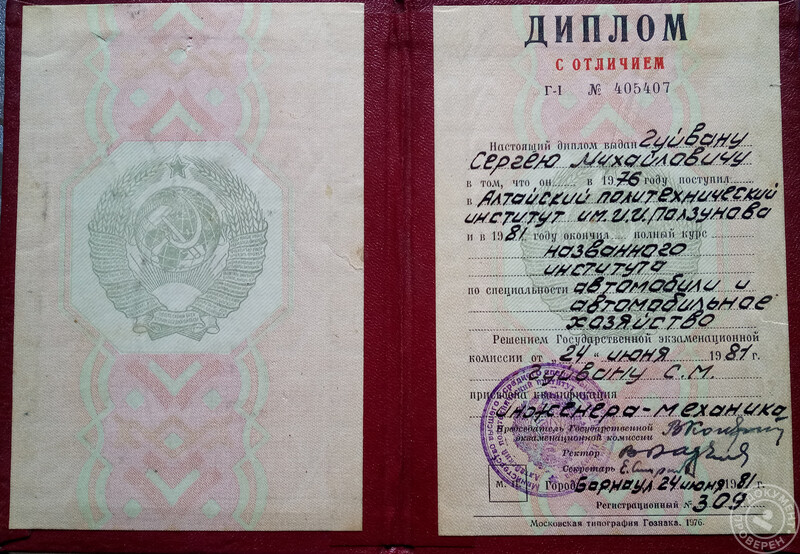 ДИПЛОМ
С ОТЛИЧИЕМ
Г-I № 405407
Настоящий диплом выдан Гуйвану
Сергею Михайловичу
в том, что он в 1976 году поступил
в Алтайский политехнический
институт им. И.И. Ползунова
и в 1981 году окончил полный курс
названного
института
по специальности автомобили и
автомобильное
хозяйство
Решением Государственной экзаменационной
комиссии от "24" июня 1981 г.
Гуйвану С.М.
присвоена квалификация
инженера-механика
Председатель Государственной
экзаменационной комиссии
Ректор
Секретарь
М. Город Барнаул 24 июня 1981 г.
Регистрационный № 309
Московская типография Гознака. 1976.
ДОКУМЕНТ
ПРОВЕРЕН